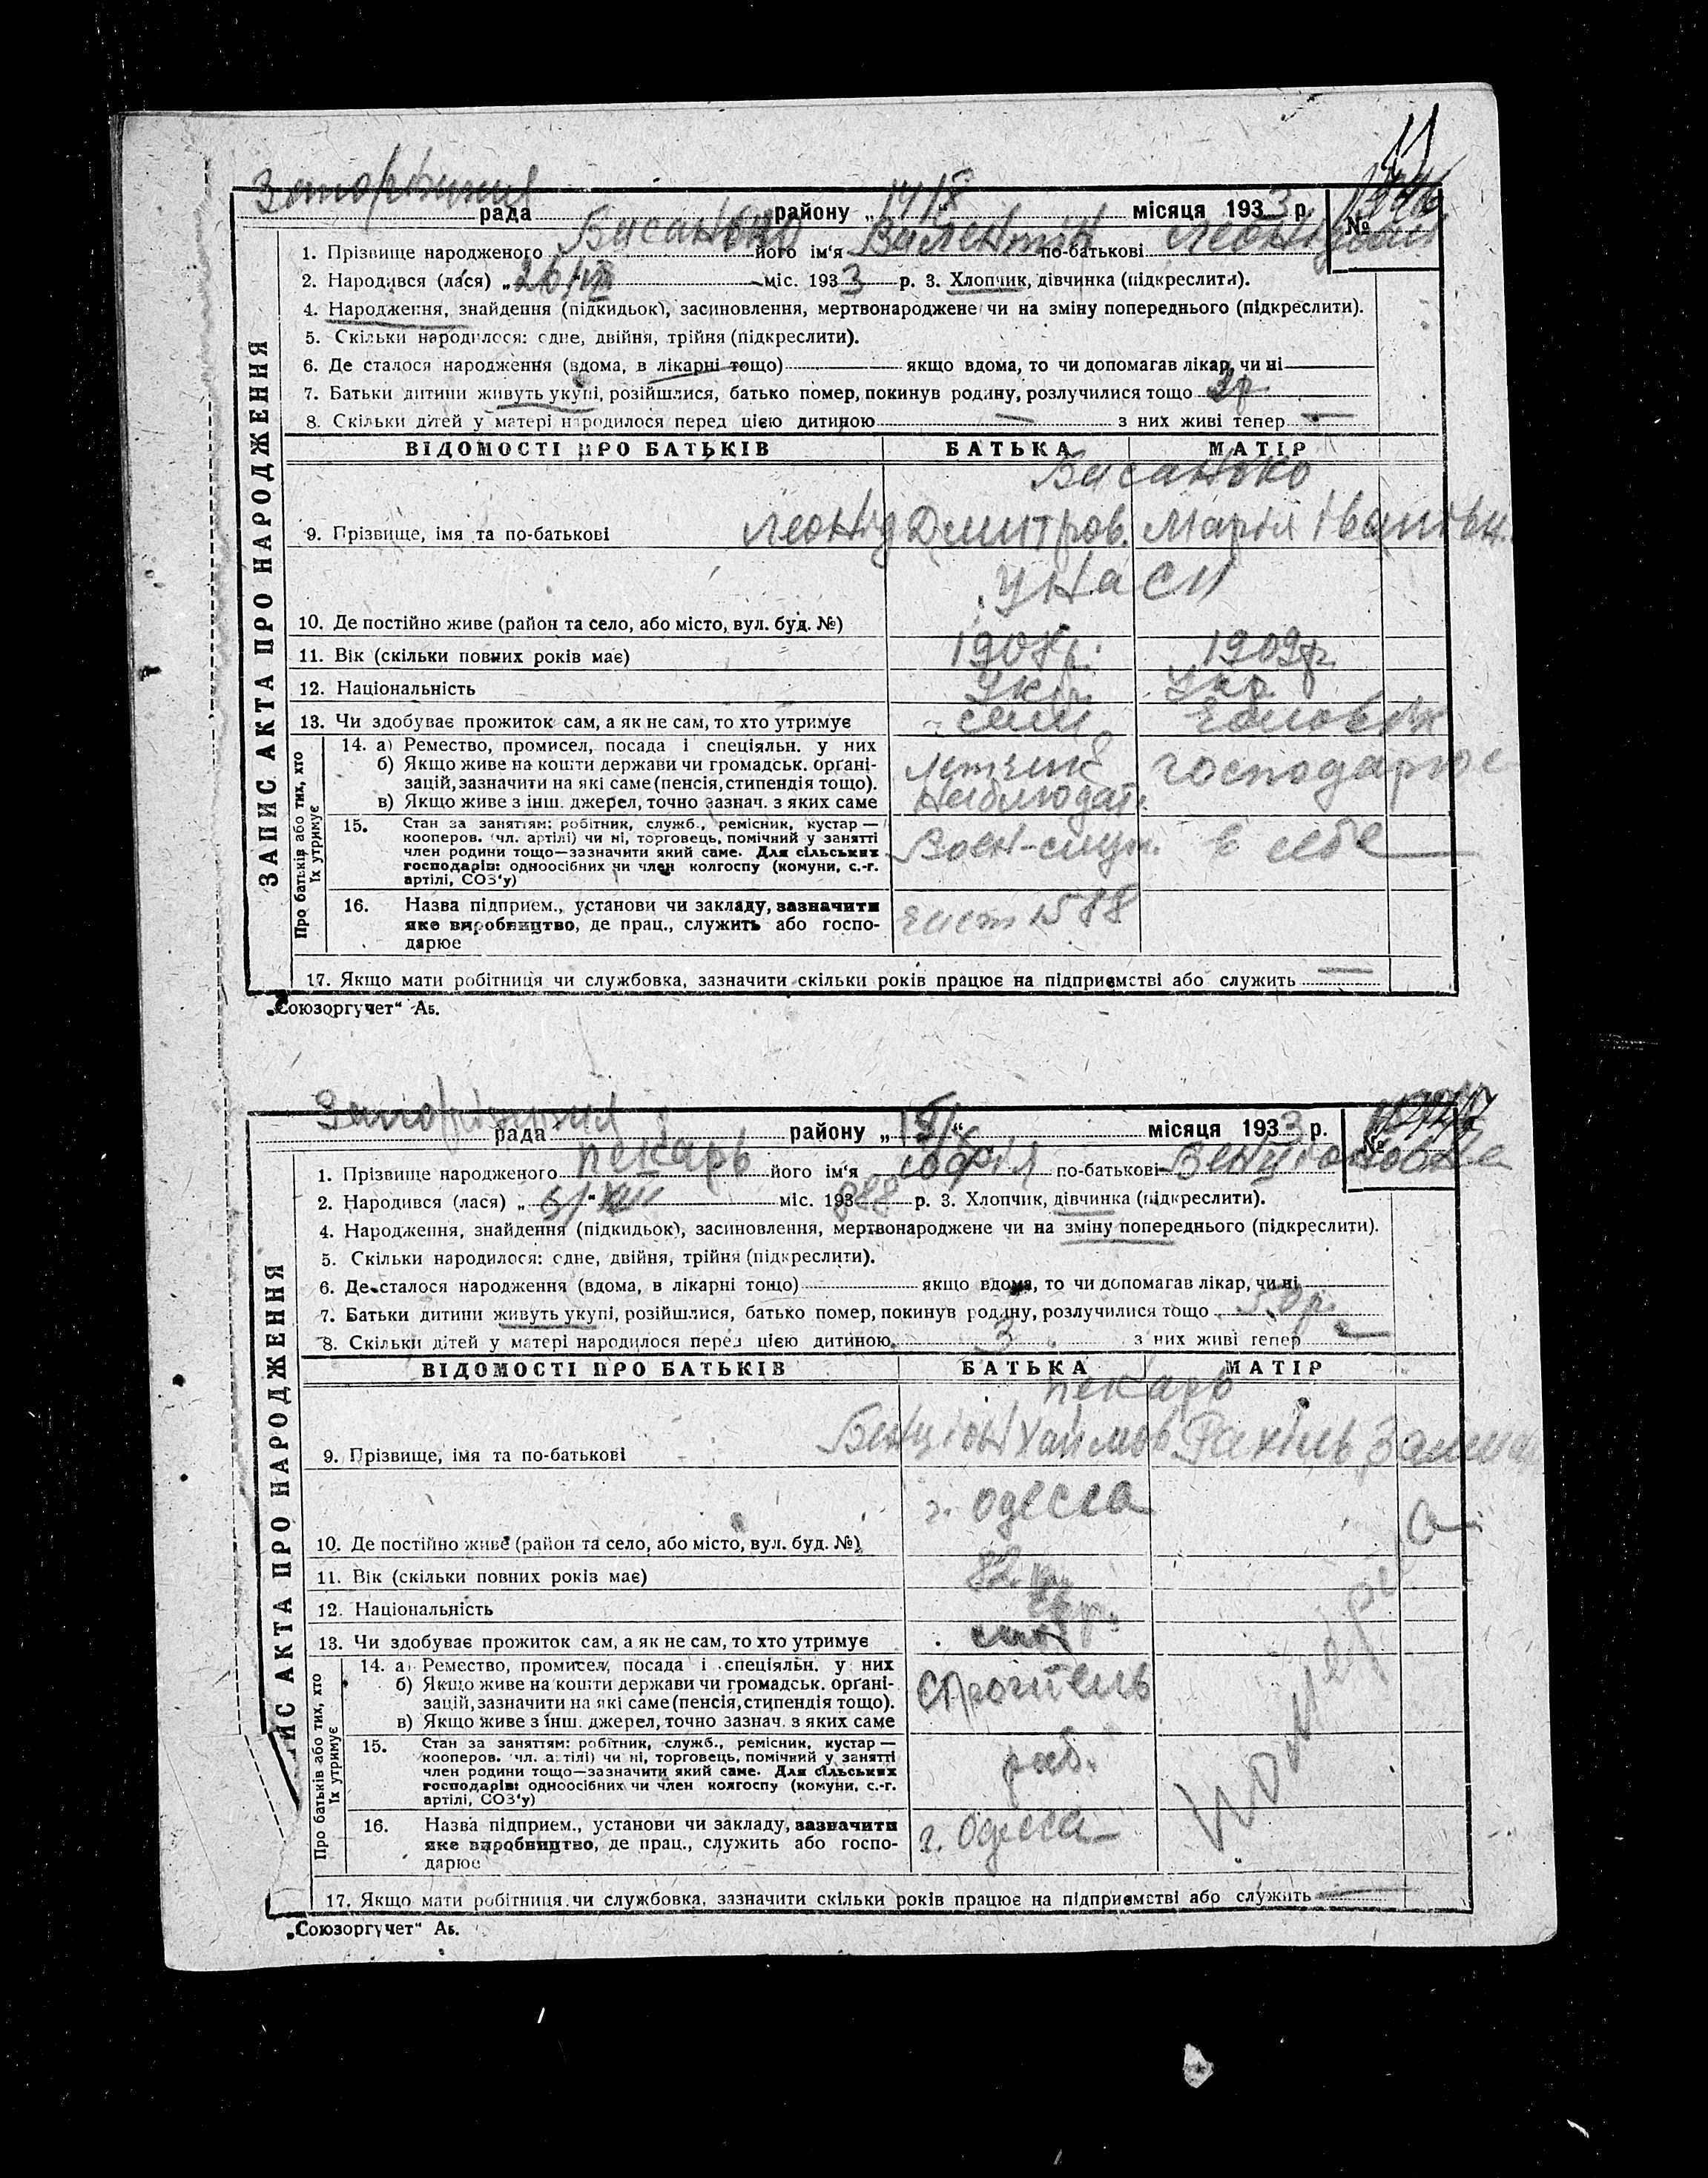 ЗАПИС АКТА ПРО НАРОДЖЕННЯ
рада району „14/X“ місяця 1933 р. №
1. Прізвище народженого Висанько його ім'я Валентін по-батькові Леонідович
2. Народився (лася) „26/ міс. 1933 р. 3. Хлопчик, дівчинка (підкреслити).
4. Народження, знайдення (підкидьок), засиновлення, мертвонароджене чи на зміну попереднього (підкреслити).
5. Скільки народилося: одне, двійня, трійня (підкреслити).
6. Де сталося народження (вдома, в лікарні тощо) — якщо вдома, то чи допомагав лікар, чи ні —
7. Батьки дитини живуть укупі, розійшлися, батько помер, покинув родину, розлучилися тощо 2р.
8. Скільки дітей у матері народилося перед цією дитиною — з них живі тепер —
ВІДОМОСТІ ПРО БАТЬКІВ БАТЬКА МАТІР
Висанько
9. Прізвище, імя та по-батькові Леонід Дмитров. Марія Івановн.
10. Де постійно живе (район та село, або місто, вул. буд. №)
11. Вік (скільки повних років має) 1909р.
12. Національність Укр. Укр.
13. Чи здобуває прожиток сам, а як не сам, то хто утримує сам Чоловік
Про батьків або тих, хто їх утримує
14. а) Ремество, промисел, посада і спеціяльн. у них
б) Якщо живе на кошти держави чи громадськ. орґані-
зацій, зазначити на які саме (пенсія, стипендія тощо).
в) Якщо живе з інш. джерел, точно зазнач. з яких саме
Летчик Наблюдат. господарює
15. Стан за заняттям: робітник, служб., ремісник, кустар—
кооперов. чл. артілі) чи ні, торговець, помічний у занятті
член родини тощо—зазначити який саме. Для сільських
господарів: одноосібних чи член колгоспу (комуни, с.-г.
артілі, СОЗ'у)
Воен-служ. в себе
16. Назва підприєм., установи чи закладу, зазначити
яке виробництво, де прац., служить або госпо-
дарює
1588
17. Якщо мати робітниця чи службовка, зазначити скільки років працює на підприємстві або служить —
„Союзоргучет“ Аб.
ИС АКТА ПРО НАРОДЖЕННЯ
рада району місяця 1933 р. №
1. Прізвище народженого Пекарь його ім'я Софія по-батькові Бенціоновна
2. Народився (лася) „6/XII“ міс. 193 888 р. 3. Хлопчик, дівчинка (підкреслити).
4. Народження, знайдення (підкидьок), засиновлення, мертвонароджене чи на зміну попереднього (підкреслити).
5. Скільки народилося: одне, двійня, трійня (підкреслити).
6. Де сталося народження (вдома, в лікарні тощо) якщо вдома, то чи допомагав лікар, чи ні
7. Батьки дитини живуть укупі, розійшлися, батько помер, покинув родину, розлучилися тощо 50р.
8. Скільки дітей у матері народилося перед цією дитиною 3 з них живі тепер —
ВІДОМОСТІ ПРО БАТЬКІВ БАТЬКА МАТІР
Пекарь
9. Прізвище, імя та по-батькові Бенціон Хаимов Рахіль
г. Одесса
10. Де постійно живе (район та село, або місто, вул. буд. №)
11. Вік (скільки повних років має) 82
12. Національність
13. Чи здобуває прожиток сам, а як не сам, то хто утримує сам
Про батьків або тих, хто їх утримує
14. а) Ремество, промисел, посада і спеціяльн. у них
б) Якщо живе на кошти держави чи громадськ. орґані-
зацій, зазначити на які саме (пенсія, стипендія тощо).
в) Якщо живе з інш. джерел, точно зазнач. з яких саме
строитель
15. Стан за заняттям: робітник, служб., ремісник, кустар—
кооперов. чл. артілі) чи ні, торговець, помічний у занятті
член родини тощо—зазначити який саме. Для сільських
господарів: одноосібних чи член колгоспу (комуни, с.-г.
артілі, СОЗ'у)
раб.
16. Назва підприєм., установи чи закладу, зазначити
яке виробництво, де прац., служить або госпо-
дарює
г. Одесса
17. Якщо мати робітниця чи службовка, зазначити скільки років працює на підприємстві або служить —
„Союзоргучет“ Аб.